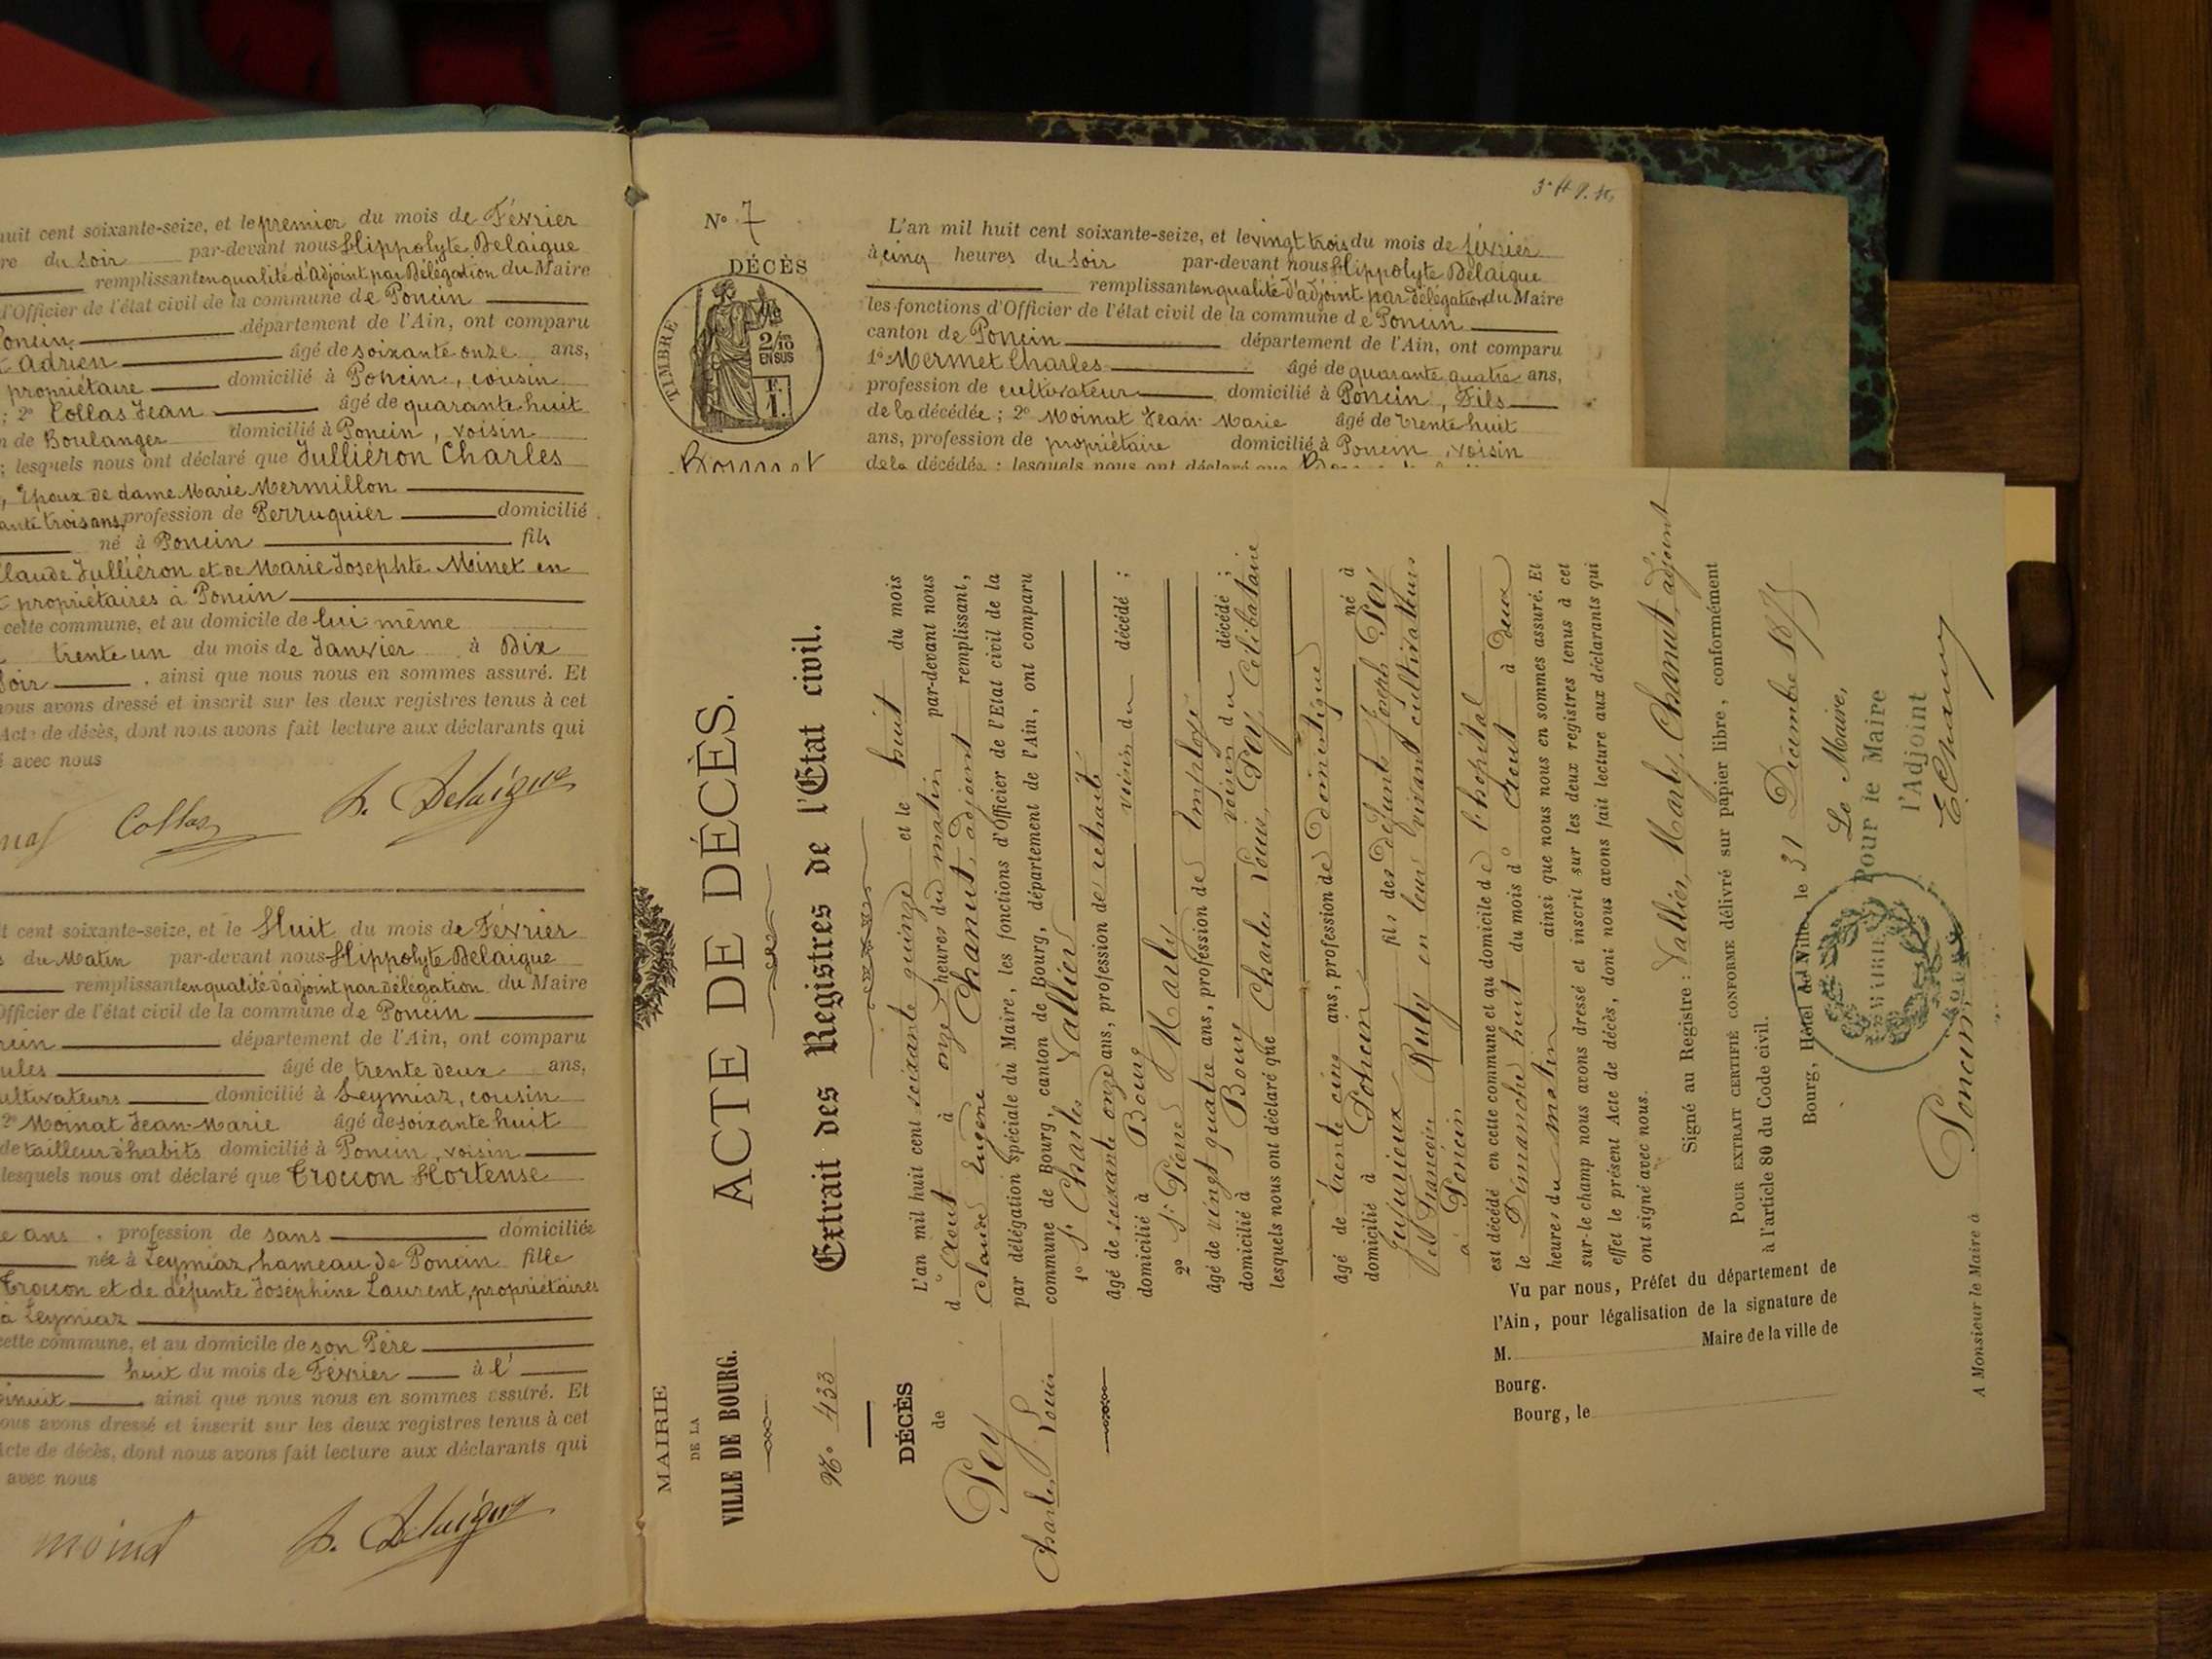 huit cent soixante-seize, et le premier du mois de Février
re du soir par-devant nous Hippolyte Delaigue
remplissant en qualité d'Adjoint par Délégation du Maire
d'Officier de l'état civil de la commune de Poncin
Poncin département de l'Ain, ont comparu
Adrien âgé de soixante onze ans,
propriétaire domicilié à Poncin, cousin
; 2º Collas Jean âgé de quarante huit
n de Boulanger domicilié à Poncin, voisin
; lesquels nous ont déclaré que Julliéron Charles
, Epoux de dame Marie Mermillon
ante trois ans, profession de Perruquier domicilié
né à Poncin fils
Claude Julliéron et de Marie Josephte Minet en
propriétaires à Poncin
cette commune, et au domicile de lui même
trente un du mois de Janvier à Dix
Soir, ainsi que nous nous en sommes assuré. Et
nous avons dressé et inscrit sur les deux registres tenus à cet
Acte de décès, dont nous avons fait lecture aux déclarants qui
é avec nous
Collas h. Delaigue
it cent soixante-seize, et le Huit du mois de Février
s du Matin par-devant nous Hippolyte Delaigue
remplissant en qualité d'adjoint par délégation du Maire
Officier de l'état civil de la commune de Poncin
ncin département de l'Ain, ont comparu
ules âgé de trente deux ans,
ultivateurs domicilié à Leymiaz, cousin
2º Moinat Jean-Marie âgé de soixante huit
de tailleur d'habits domicilié à Poncin, voisin
lesquels nous ont déclaré que Croccon Hortense
e ans, profession de sans domiciliée
née à Leymiaz, hameau de Poncin fille
Croccon et de défunte Joséphine Laurent, propriétaires
à Leymiaz
cette commune, et au domicile de son Père
huit du mois de Février à l'
minuit, ainsi que nous nous en sommes assuré. Et
ous avons dressé et inscrit sur les deux registres tenus à cet
Acte de décès, dont nous avons fait lecture aux déclarants qui
avec nous
moinat h. Delaigue
Nº 7
DÉCÈS
TIMBRE
2/10
EN SUS
F.
1.
L'an mil huit cent soixante-seize, et le vingt trois du mois de février
à cinq heures du soir par-devant nous Hippolyte Delaigue
remplissant en qualité d'adjoint par délégation du Maire
les fonctions d'Officier de l'état civil de la commune de Poncin
canton de Poncin département de l'Ain, ont comparu
1º Mermet Charles âgé de quarante quatre ans,
profession de cultivateur domicilié à Poncin, Fils
de la décédée; 2º Moinat Jean-Marie âgé de trente huit
ans, profession de propriétaire domicilié à Poncin, voisin
de la décédée; lesquels nous ont déclaré que
MAIRIE
DE LA
VILLE DE BOURG.
Nº 433
DÉCÈS
de
Pey
Charles Louis
ACTE DE DÉCÈS.
Extrait des Registres de l'Etat civil.
L'an mil huit cent soixante quinze et le huit du mois
d'Aout à onze heures du matin par-devant nous
Claude Eugène Chanut, adjoint remplissant,
par délégation spéciale du Maire, les fonctions d'Officier de l'Etat civil de la
commune de Bourg, canton de Bourg, département de l'Ain, ont comparu
1º Sr Charles Vallier
âgé de soixante onze ans, profession de retraité
domicilié à Bourg voisin du décédé;
2º Sr Pierre Marly
âgé de vingt quatre ans, profession de Employé
domicilié à Bourg voisin du décédé;
lesquels nous ont déclaré que Charles Louis Pey, Celibataire
âgé de trente cinq ans, profession de Domestique
domicilié à Poncin né à
Jujurieux fils des défunts Joseph Pey
et Francoise Ruty en leur vivant cultivateurs
à Poncin
est décédé en cette commune et au domicile de l'hopital
le Dimanche huit du mois d'Aout à deux
heures du matin ainsi que nous nous en sommes assuré. Et
sur-le champ nous avons dressé et inscrit sur les deux registres tenus à cet
effet le présent Acte de décès, dont nous avons fait lecture aux déclarants qui
ont signé avec nous.
Signé au Registre: Vallier, Marly, Chanut, adjoint
POUR EXTRAIT CERTIFIÉ CONFORME délivré sur papier libre, conformément
à l'article 80 du Code civil.
Bourg, Hôtel de Ville, le 31 Décembre 1875
Le Maire,
Pour le Maire
l'Adjoint
MAIRIE
Vu par nous, Préfet du département de
l'Ain, pour légalisation de la signature de
M. Maire de la ville de
Bourg.
Bourg, le
A Monsieur le Maire à Poncin